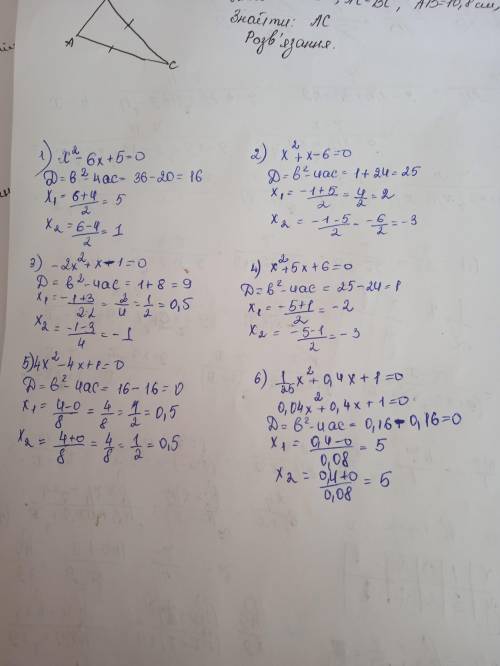 AC=BC, AB=10,8 см,
Знайти: AC
Розв'язання.
A
C
1) x²-6x+5=0
D=в²-4ас=36-20=16
x₁=(6+4)/2=5
x₂=(6-4)/2=1
2) x²+x-6=0
D=в²-4ас=1+24=25
x₁=(-1+5)/2=4/2=2
x₂=(-1-5)/2-6/2=-3
3) -2x²+x-1=0
D=в²-4ас=1+8=9
x₁=(-1+3)/(2·2)=2/4=1/2=0,5
x₂=(-1-3)/4=-1
4) x²+5x+6=0
D=в²-4ас=25-24=1
x₁=(-5+1)/2=-2
x₂=(-5-1)/2=-3
5) 4x²-4x+1=0
D=в²-4ас=16-16=0
x₁=(4-0)/8=4/8=1/2=0,5
x₂=(4+0)/8=4/8=1/2=0,5
6) 1/25x²+0,4x+1=0
0,04x²+0,4x+1=0
D=в²-4ас=0,16-0,16=0
x₁=(0,4-0)/0,08=5
x₂=(0,4+0)/0,08=5